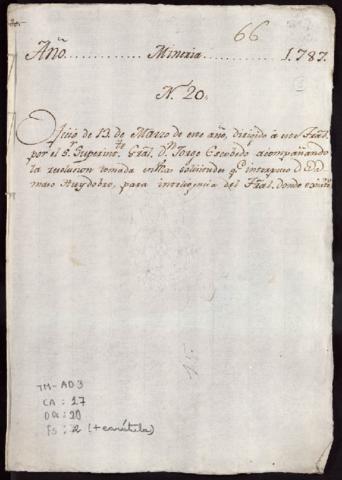 66
Año............ Mineria ............ 1.787.
N.º 20.
Oficio de 13 de Marzo de este año, dirigido à este Trãl.
por el S.r Superint.te Gral. D.n Jorge Escobedo acompañando
la resolucion tomada en las solicitudes q.e interpuso D. Da-
maso Huydobro, para inteligencia del Trãl. donde
TM-AD3
CA: 27
Do: 20
Fs: 2 (+ carátula)